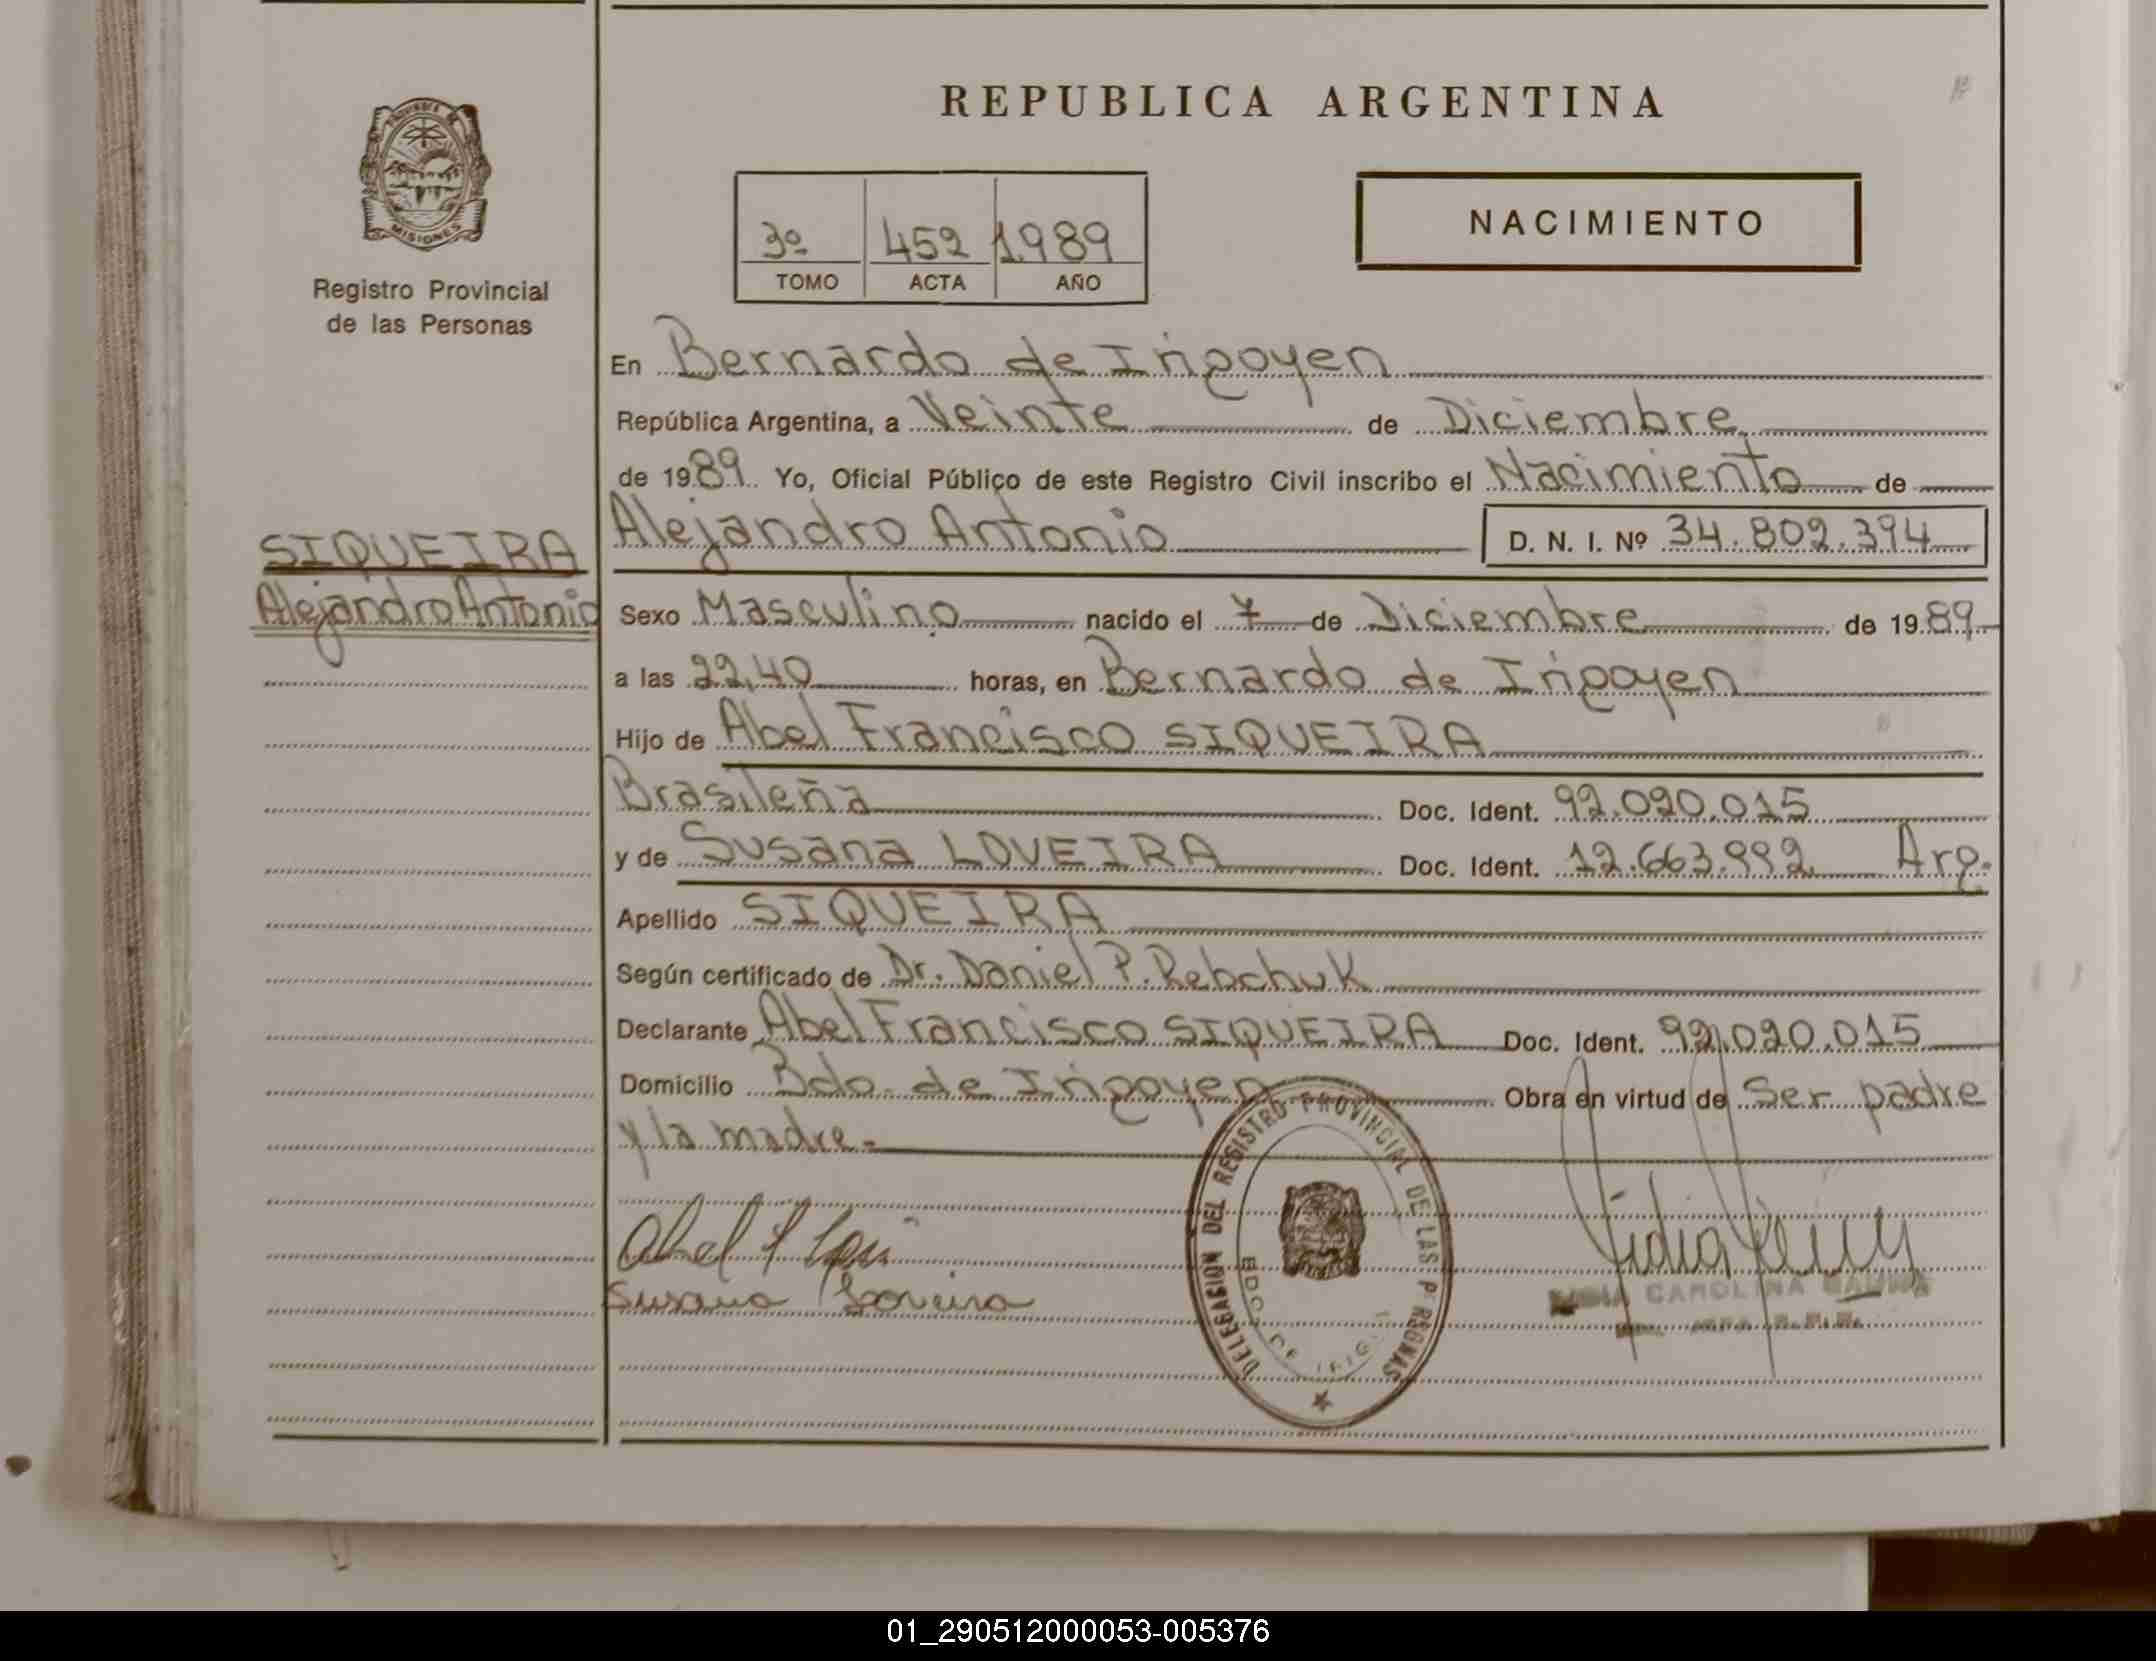 REPUBLICA ARGENTINA
PROVINCIA DE
MISIONES
Registro Provincial
de las Personas
3º 452 1989
TOMO ACTA AÑO
NACIMIENTO
En Bernardo de Irigoyen
República Argentina, a Veinte de Diciembre
de 1989. Yo, Oficial Público de este Registro Civil inscribo el Nacimiento de
SIQUEIRA
Alejandro Antonio
Alejandro Antonio D. N. I. Nº 34.802.394
Sexo Masculino nacido el 7 de Diciembre de 1989
a las 22,40 horas, en Bernardo de Irigoyen
Hijo de Abel Francisco SIQUEIRA
Brasileña Doc. Ident. 92.020.015
y de Susana LOVEIRA Doc. Ident. 12.663.992 Arg.
Apellido SIQUEIRA
Según certificado de Dr. Daniel P. Rebchuk
Declarante Abel Francisco SIQUEIRA Doc. Ident. 92.020.015
Domicilio Bdo. de Irigoyen Obra en virtud de Ser padre
y la madre.-
Abel F
Susana Loveira
DELEGASION DEL REGISTRO PROVINCIAL DE LAS P
BDO DE IRIG
CAROLINA
01_290512000053-005376